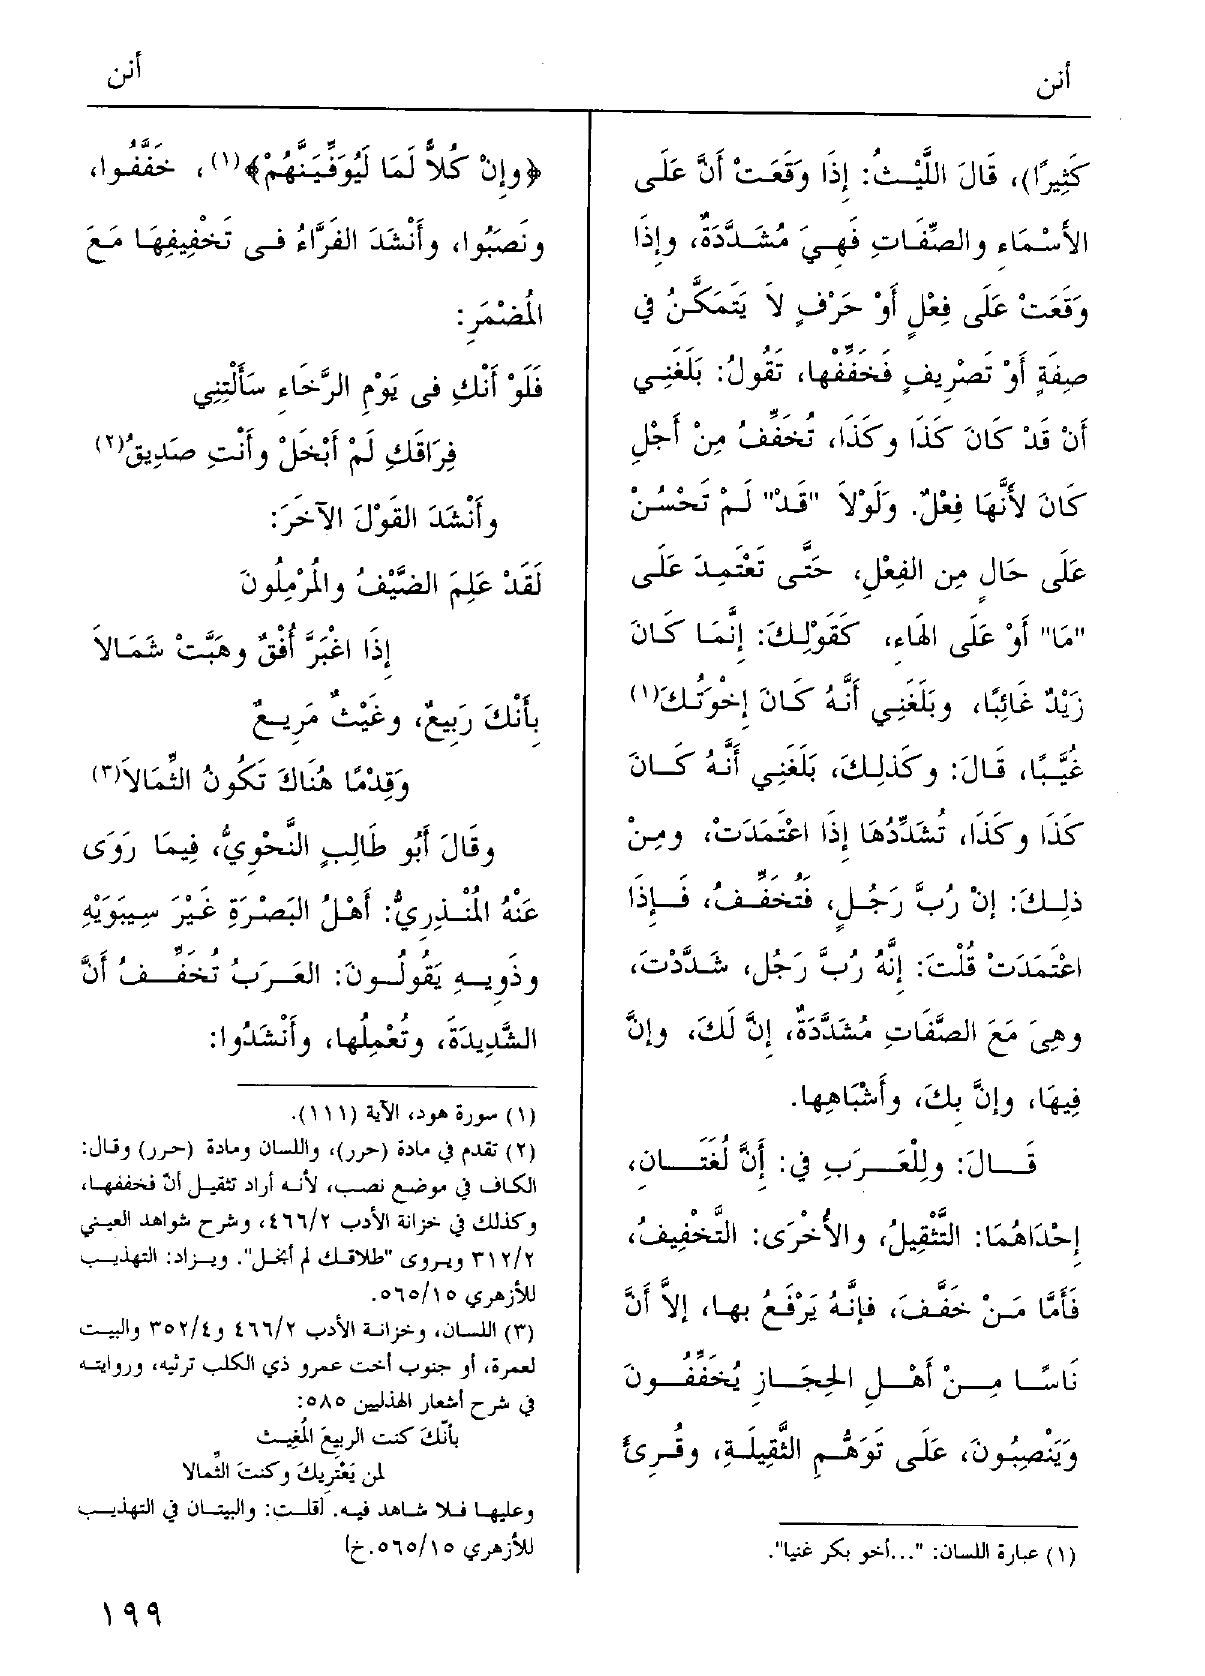 أنن
أنن
كَثِيرًا)، قَالَ اللَّيْثُ: إِذَا وَقَعَتْ أَنَّ عَلَى
الأَسْمَاءِ والصِّفَاتِ فَهِيَ مُشَدَّدَةٌ، وإِذَا
وَقَعَتْ عَلَى فِعْلٍ أَوْ حَرْفٍ لاَ يَتَمَكَّنُ في
صِفَةٍ أَوْ تَصْرِيفٍ فَخَفِّفْهَا، تَقُولُ: بَلَغَنِي
أَنْ قَدْ كَانَ كَذَا وكَذَا، تُخَفِّفُ مِنْ أَجْلِ
كَانَ لأَنَّهَا فِعْلٌ. وَلَوْلاَ "قَدْ" لَمْ تَحْسُنْ
عَلَى حَالٍ مِن الفِعْلِ، حَتَّى تَعْتَمِدَ عَلَى
"مَا" أَوْ عَلَى الهَاءِ، كَقَوْلِكَ: إِنَّمَا كَانَ
زَيْدٌ غَائِبًا، وبَلَغَنِي أَنَّهُ كَانَ إِخْوَتُكَ(١)
غُيَّبًا، قَالَ: وكَذلِكَ، بَلَغَنِي أَنَّهُ كَانَ
كَذَا وكَذَا، تُشَدِّدُهَا إِذَا اعْتَمَدَتْ، ومِنْ
ذلِكَ: إِنْ رُبَّ رَجُلٍ، فَتُخَفِّفُ، فَإِذَا
اعْتَمَدَتْ قُلْتَ: إِنَّهُ رُبَّ رَجُلٍ، شَدَّدْتَ،
وهِيَ مَعَ الصِّفَاتِ مُشَدَّدَةٌ، إِنَّ لَكَ، وإِنَّ
فِيهَا، وإِنَّ بِكَ، وأَشْبَاهِهَا.
قَالَ: ولِلْعَرَبِ في: إِنَّ لُغَتَانِ،
إِحْدَاهُمَا: التَّثْقِيلُ، والأُخْرَى: التَّخْفِيفُ،
فَأَمَّا مَنْ خَفَّفَ، فإِنَّهُ يَرْفَعُ بهَا، إِلاَّ أَنَّ
نَاسًا مِنْ أَهْلِ الحِجَازِ يُخَفِّفُونَ
وَيَنْصِبُونَ، عَلَى تَوَهُّمِ الثَّقِيلَةِ، وقُرِئَ
(١) عبارة اللسان: "...أخو بكر غنيا".
﴿وإِنْ كُلاًّ لَمَا لَيُوَفِّيَنَّهُمْ﴾(١)، خَفَّفُوا،
ونَصَبُوا، وأَنْشَدَ الفَرَّاءُ فى تَخْفِيفِهَا مَعَ
المُضْمَرِ:
فَلَوْ أَنْكِ فى يَوْمِ الرَّخَاءِ سَأَلْتِنِي
فِرَاقَكِ لَمْ أَبْخَلْ وأَنْتِ صَدِيقُ(٢)
وأَنْشَدَ القَوْلَ الآخَرَ:
لَقَدْ عَلِمَ الضَّيْفُ والمُرْمِلُونَ
إِذَا اغْبَرَّ أُفْقٌ وهَبَّتْ شَمَالاَ
بِأَنْكَ رَبِيعٌ، وغَيْثٌ مَرِيعٌ
وَقِدْمًا هُنَاكَ تَكُونُ الثِّمَالاَ(٣)
وقَالَ أَبُو طَالِبٍ النَّحْوِيُّ، فِيمَا رَوَى
عَنْهُ المُنْذِرِيُّ: أَهْلُ البَصْرَةِ غَيْرَ سِيبَوَيْهِ
وذَوِيهِ يَقُولُونَ: العَرَبُ تُخَفِّفُ أَنَّ
الشَّدِيدَةَ، وتُعْمِلُها، وأَنْشَدُوا:
(١) سورة هود، الآية (١١١).
(٢) تقدم في مادة (حرر)، واللسان ومادة (حرر) وقال:
الكاف في موضع نصب، لأنه أراد تثقيل أنّ فخففها،
وكذلك في خزانة الأدب ٤٦٦/٢، وشرح شواهد العيني
٣١٢/٢ ويروى "طلاقك لم أبخل". ويزاد: التهذيب
للأزهري ٥٦٥/١٥.
(٣) اللسان، وخزانة الأدب ٤٦٦/٢ و٣٥٢/٤ والبيت
لعمرة، أو جنوب أخت عمرو ذي الكلب ترثيه، وروايته
في شرح أشعار الهذليين ٥٨٥:
بأنّكَ كنت الربيعَ المُغِيثَ
لمن يَعْتريكَ وكنتَ الثِّمالا
وعليها فلا شاهد فيه. [قلت: والبيتان في التهذيب
للأزهري ٥٦٥/١٥.خ]
١٩٩